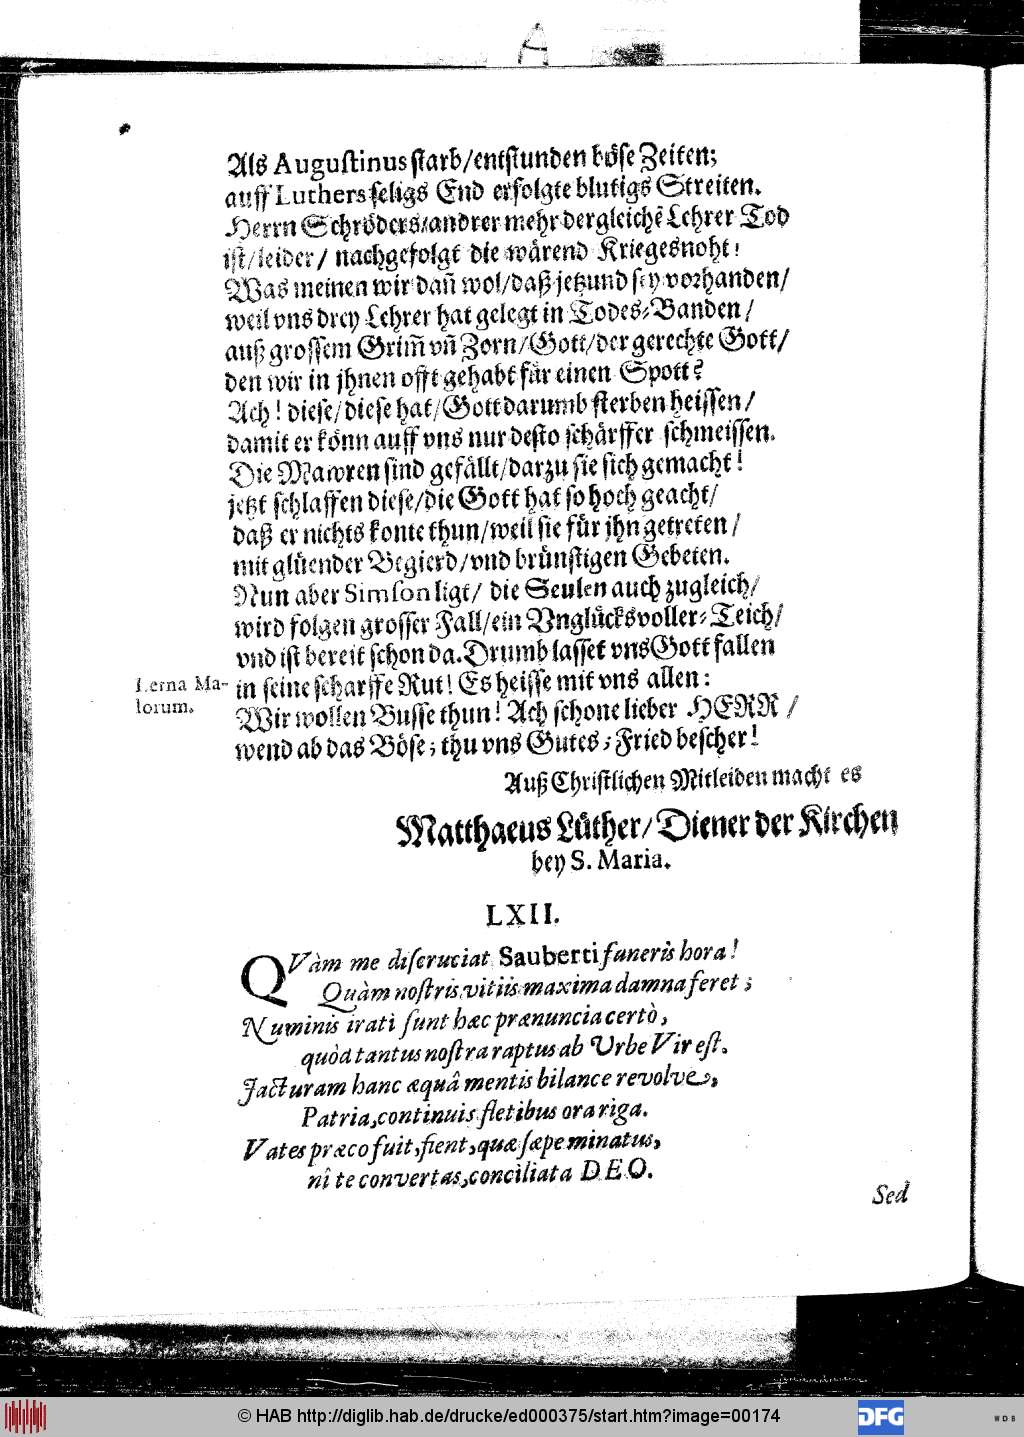 A
Als Augustinus starb/entstunden böse Zeiten;
auff Luthers seligs End erfolgte blutigs Streiten.
Herrn Schröders/andrer mehr dergleichẽ Lehrer Tod
ist/leider/ nachgefolgt die wärend Kriegesnoht!
Was meinen wir dañ wol/daß jetzund sey vorhanden/
weil vns drey Lehrer hat gelegt in Todes-Banden/
auß grossem Grim̃ vñ Zorn/Gott/der gerechte Gott/
den wir in jhnen offt gehabt für einen Spott?
Ach! diese/diese hat/Gott darumb sterben heissen/
damit er könn auff vns nur desto schärffer schmeissen.
Die Mawren sind gefällt/darzu sie sich gemacht!
jetzt schlaffen diese/die Gott hat so hoch geacht/
daß er nichts konte thun/weil sie für jhn getreten/
mit glüender Begierd/vnd brünstigen Gebeten.
Nun aber Simson ligt/ die Seulen auch zugleich/
wird folgen grosser Fall/ein Vnglücksvoller-Teich/
vnd ist bereit schon da. Drumb lasset vns Gott fallen
Lerna Ma- in seine scharffe Rut! Es heisse mit vns allen:
lorum. Wir wollen Busse thun! Ach schone lieber HERR/
wend ab das Böse; thu vns Gutes; Fried bescher!
Auß Christlichen Mitleiden macht es
Matthaeus Lüther/Diener der Kirchen
bey S. Maria.
LXII.
QVàm me discruciat Sauberti funeris hora!
Quàm nostris vitiis maxima damna feret;
Numinis irati sunt hæc prænuncia certò,
quòd tantus nostra raptus ab Urbe Vir est.
Jacturam hanc æquâ mentis bilance revolve,
Patria, continuis fletibus ora riga.
Vates præco fuit, fient, quæ sæpe minatus,
nî te convertas, conciliata DEO.
Sed
© HAB http://diglib.hab.de/drucke/ed000375/start.htm?image=00174
DFG
WDB